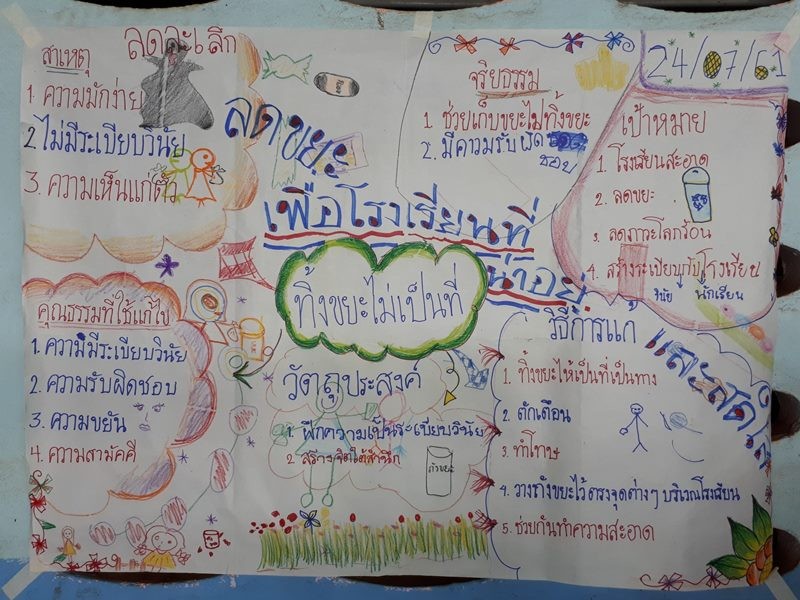 สาเหตุ
1. ความมักง่าย
2. ไม่มีระเบียบวินัย
3. ความเห็นแก่ตัว
ลดละเลิก
ลดขยะ
เพื่อโรงเรียนที่
น่าอยู่
และสดใส
ทิ้งขยะไม่เป็นที่
จริยธรรม
1. ช่วยเก็บขยะไม่ทิ้งขยะ
2. มีความรับผิด
ชอบ
24/07/61
เป้าหมาย
1. โรงเรียนสะอาด
2. ลดขยะ
3. ลดภาวะโลกร้อน
4. สร้างระเบียบกับโรงเรียน
วินัย นักเรียน
คุณธรรมที่ใช้แก้ไข
1. ความมีระเบียบวินัย
2. ความรับผิดชอบ
3. ความขยัน
4. ความสามัคคี
วัตถุประสงค์
1. ฝึกความเป็นระเบียบวินัย
2. สร้างจิตใต้สำนึก
วิธีการแก้
1. ทิ้งขยะให้เป็นที่เป็นทาง
2. ตักเตือน
3. ทำโทษ
4. วางถังขยะไว้ตรงจุดต่างๆ บริเวณโรงเรียน
5. ช่วยกันทำความสะอาด